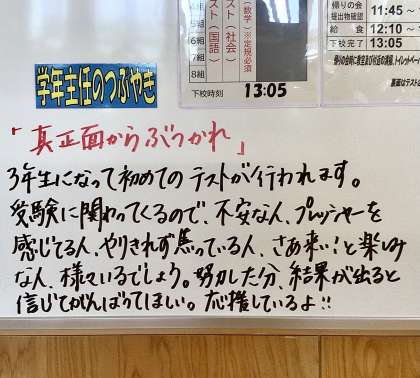 5組
6組
7組
8組
テスト(国語)
テスト(社会)
(数学)
※定規必須
下校時刻 13:05
帰りの会 11:45 ~
提出物確認
給食 12:10 ~
下校完了 13:05
学年主任のつぶやき
「真正面からぶつかれ」
3年生になって初めてのテストが行われます。
受験に関わってくるので、不安な人、プレッシャーを
感じてる人、やりきれず焦っている人、さあ来い!と楽しみ
な人、様々いるでしょう。努力した分、結果が出ると
信じてがんばってほしい。応援しているよ!!